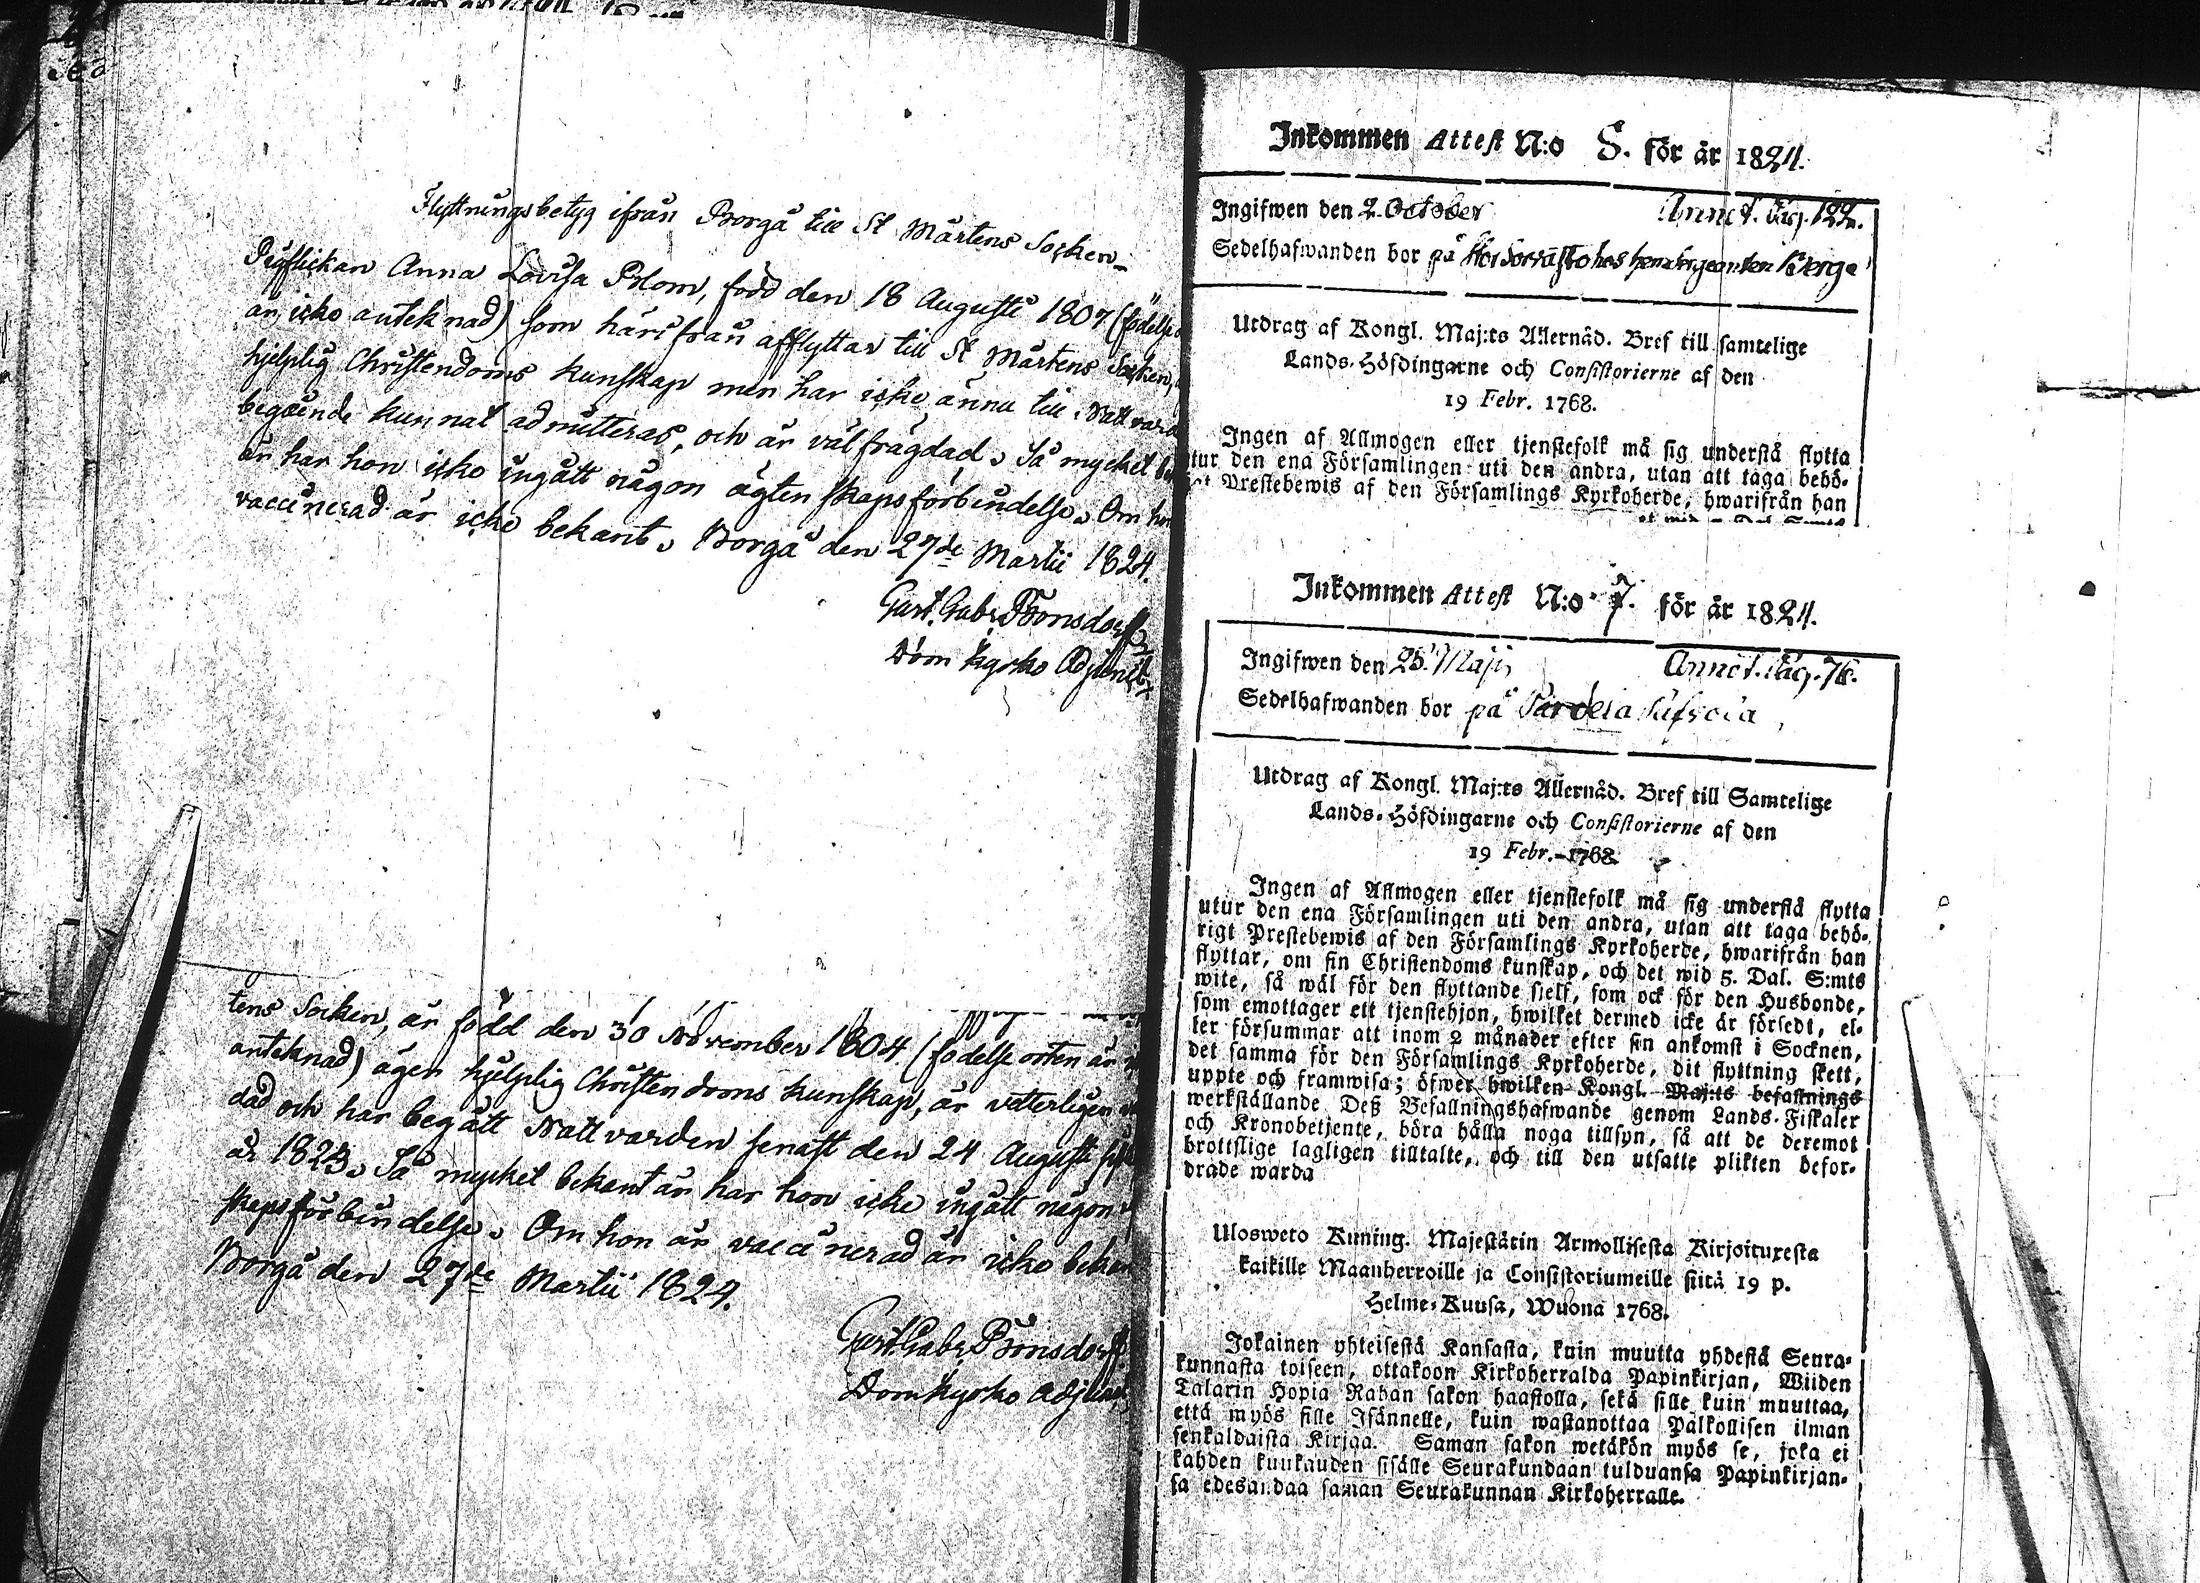 Flyttningsbetyg ifrån Borgå till St Mårtens Socken_
Pigflickan Anna Lovisa Blom, född den 18 Augusti 1807 (födelse
än icke anteknad) som härifrån afflyttar till St Mårtens Socken,
hjelplig Christendoms kunskap men har icke ännu till Nattvard
begående kunnat admitteras, och är välfrägdad. Så mycket
är har hon icke ingått någon ägtenskapsförbindelse. Om hon
vaccinerad är icke bekant. Borgå den 27de Martii 1824.
Gust. Gabr. Bonsdorff
Domkyrko Adjunct
tens Socken, är född den 30 November 1804 (födelse orten är
anteknad) äger hjelplig Christendoms kunskap, är veterligen
dad och har begått Nattvarden senast den 24 Augusti
år 1823. Så mycket bekant är har hon icke ingått någon
skapsförbindelse. Om hon är vaccinerad är icke bekant
Borgå den 27de Martii 1824.
Gust. Gabr. Bonsdorff
Domkyrko Adjunct
Inkommen Attest N:o 8. för år 1824.
Ingifwen den 2 October Annot. Pag. 122.
Sedelhafwanden bor på hos Berge
Utdrag af Kongl. Maj:ts Allernåd. Bref till samtelige
Lands-Höfdingarne och Consistorierne af den
19 Febr. 1768.
Ingen af Allmogen eller tjenstefolk må sig understå flytta
utur den ena Församlingen uti den andra, utan att taga behö-
Prestebewis af den Församlings Kyrkoherde, hwarifrån han
Inkommen Attest N:o 7. för år 1824.
Ingifwen den 25 Maji Annot. Pag. 76.
Sedelhafwanden bor på
Utdrag af Kongl. Maj:ts Allernåd. Bref till Samtelige
Lands-Höfdingarne och Consistorierne af den
19 Febr. 1768.
Ingen af Allmogen eller tjenstefolk må sig understå flytta
utur den ena Församlingen uti den andra, utan att taga behö-
rigt Prestebewis af den Församlings Kyrkoherde, hwarifrån han
flyttar, om sin Christendoms kunskap, och det wid 5. Dal. S:mts
wite, så wäl för den flyttande sjelf, som ock för den Husbonde,
som emottager ett tjenstehjon, hwilket dermed icke är försedt, el-
ler försummar att inom 2 månader efter sin ankomst i Socknen,
det samma för den Församlings Kyrkoherde, dit flyttning skett,
uppte och framwisa; öfwer hwilken Kongl. Maj:ts befallnings
werkställande Deß Befallningshafwande genom Lands-Fiskaler
och Kronobetjente, böra hålla noga tillsyn, så att de deremot
brottslige lagligen tilltalte, och till den utsatte plikten befor-
drade warda
Ulosweto Kuning. Majestätin Armollisesta Kirjoituxesta
kaikille Maanherroille ja Consistoriumeille siitä 19 p.
Helme-Kuusa, Wuona 1768.
Jokainen yhteisestä Kansasta, kuin muutta yhdestä Seura-
kunnasta toiseen, ottakoon Kirkoherralda Papinkirjan, Wiiden
Talarin Hopia Rahan sakon haastolla, sekä sille kuin muuttaa,
että myös sille Isännelle, kuin wastanottaa Palkollisen ilman
senkaldaista Kirjaa. Saman sakon wetäkön myös se, joka ei
kahden kuukauden sisälle Seurakundaan tulduansa Papinkirjan-
sa edesandaa saman Seurakunnan Kirkoherralle.